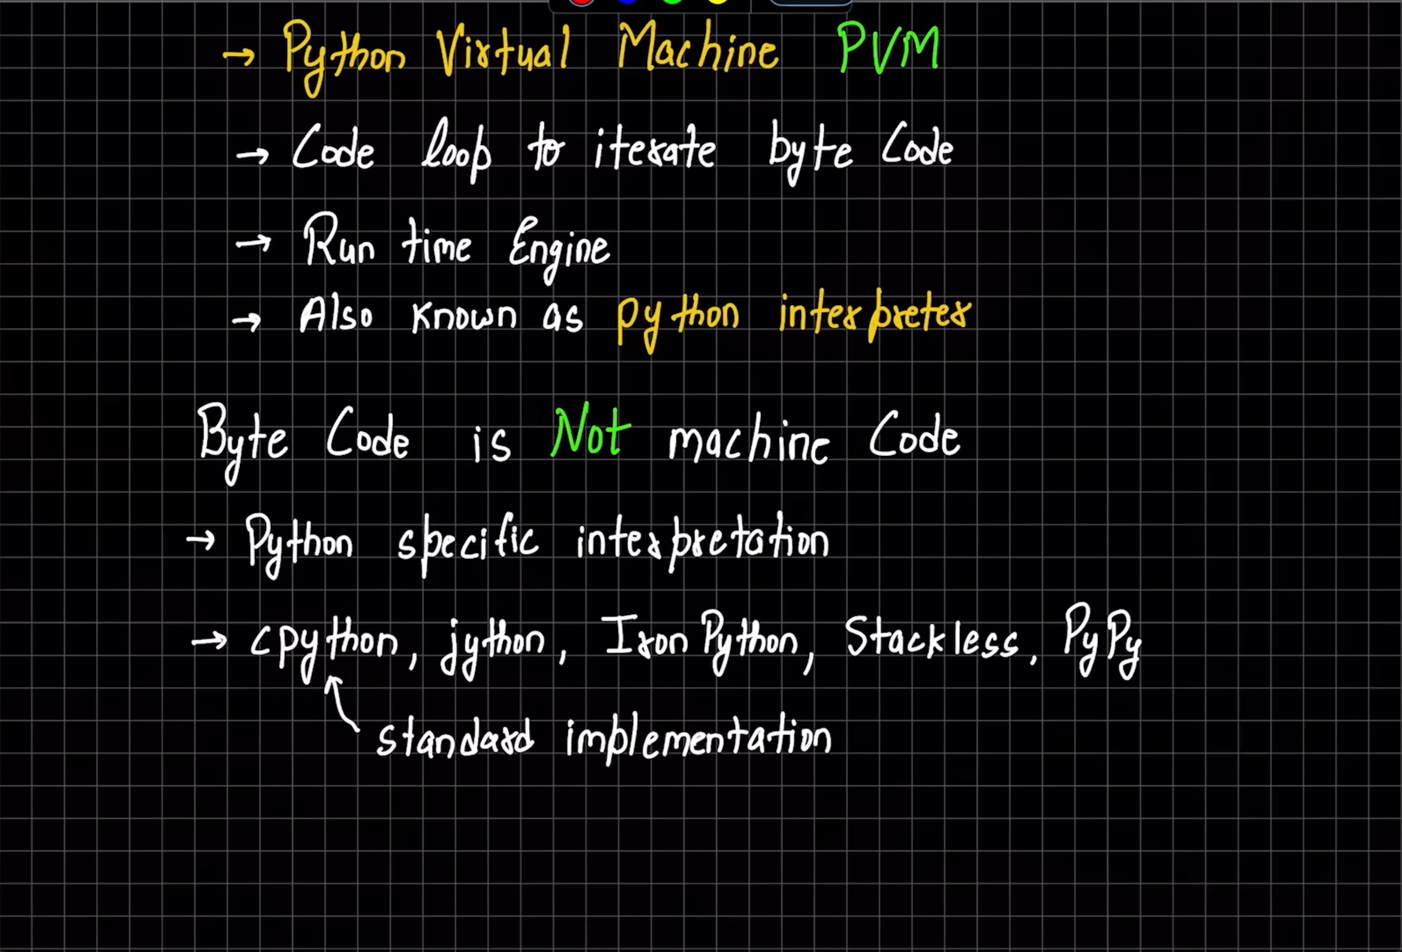 → Python Virtual Machine PVM
→ Code loop to iterate byte Code
→ Run time Engine
→ Also known as python interpreter
Byte Code is Not machine Code
→ Python specific interpretation
→ cpython, jython, Iron Python, Stackless, PyPy
standard implementation